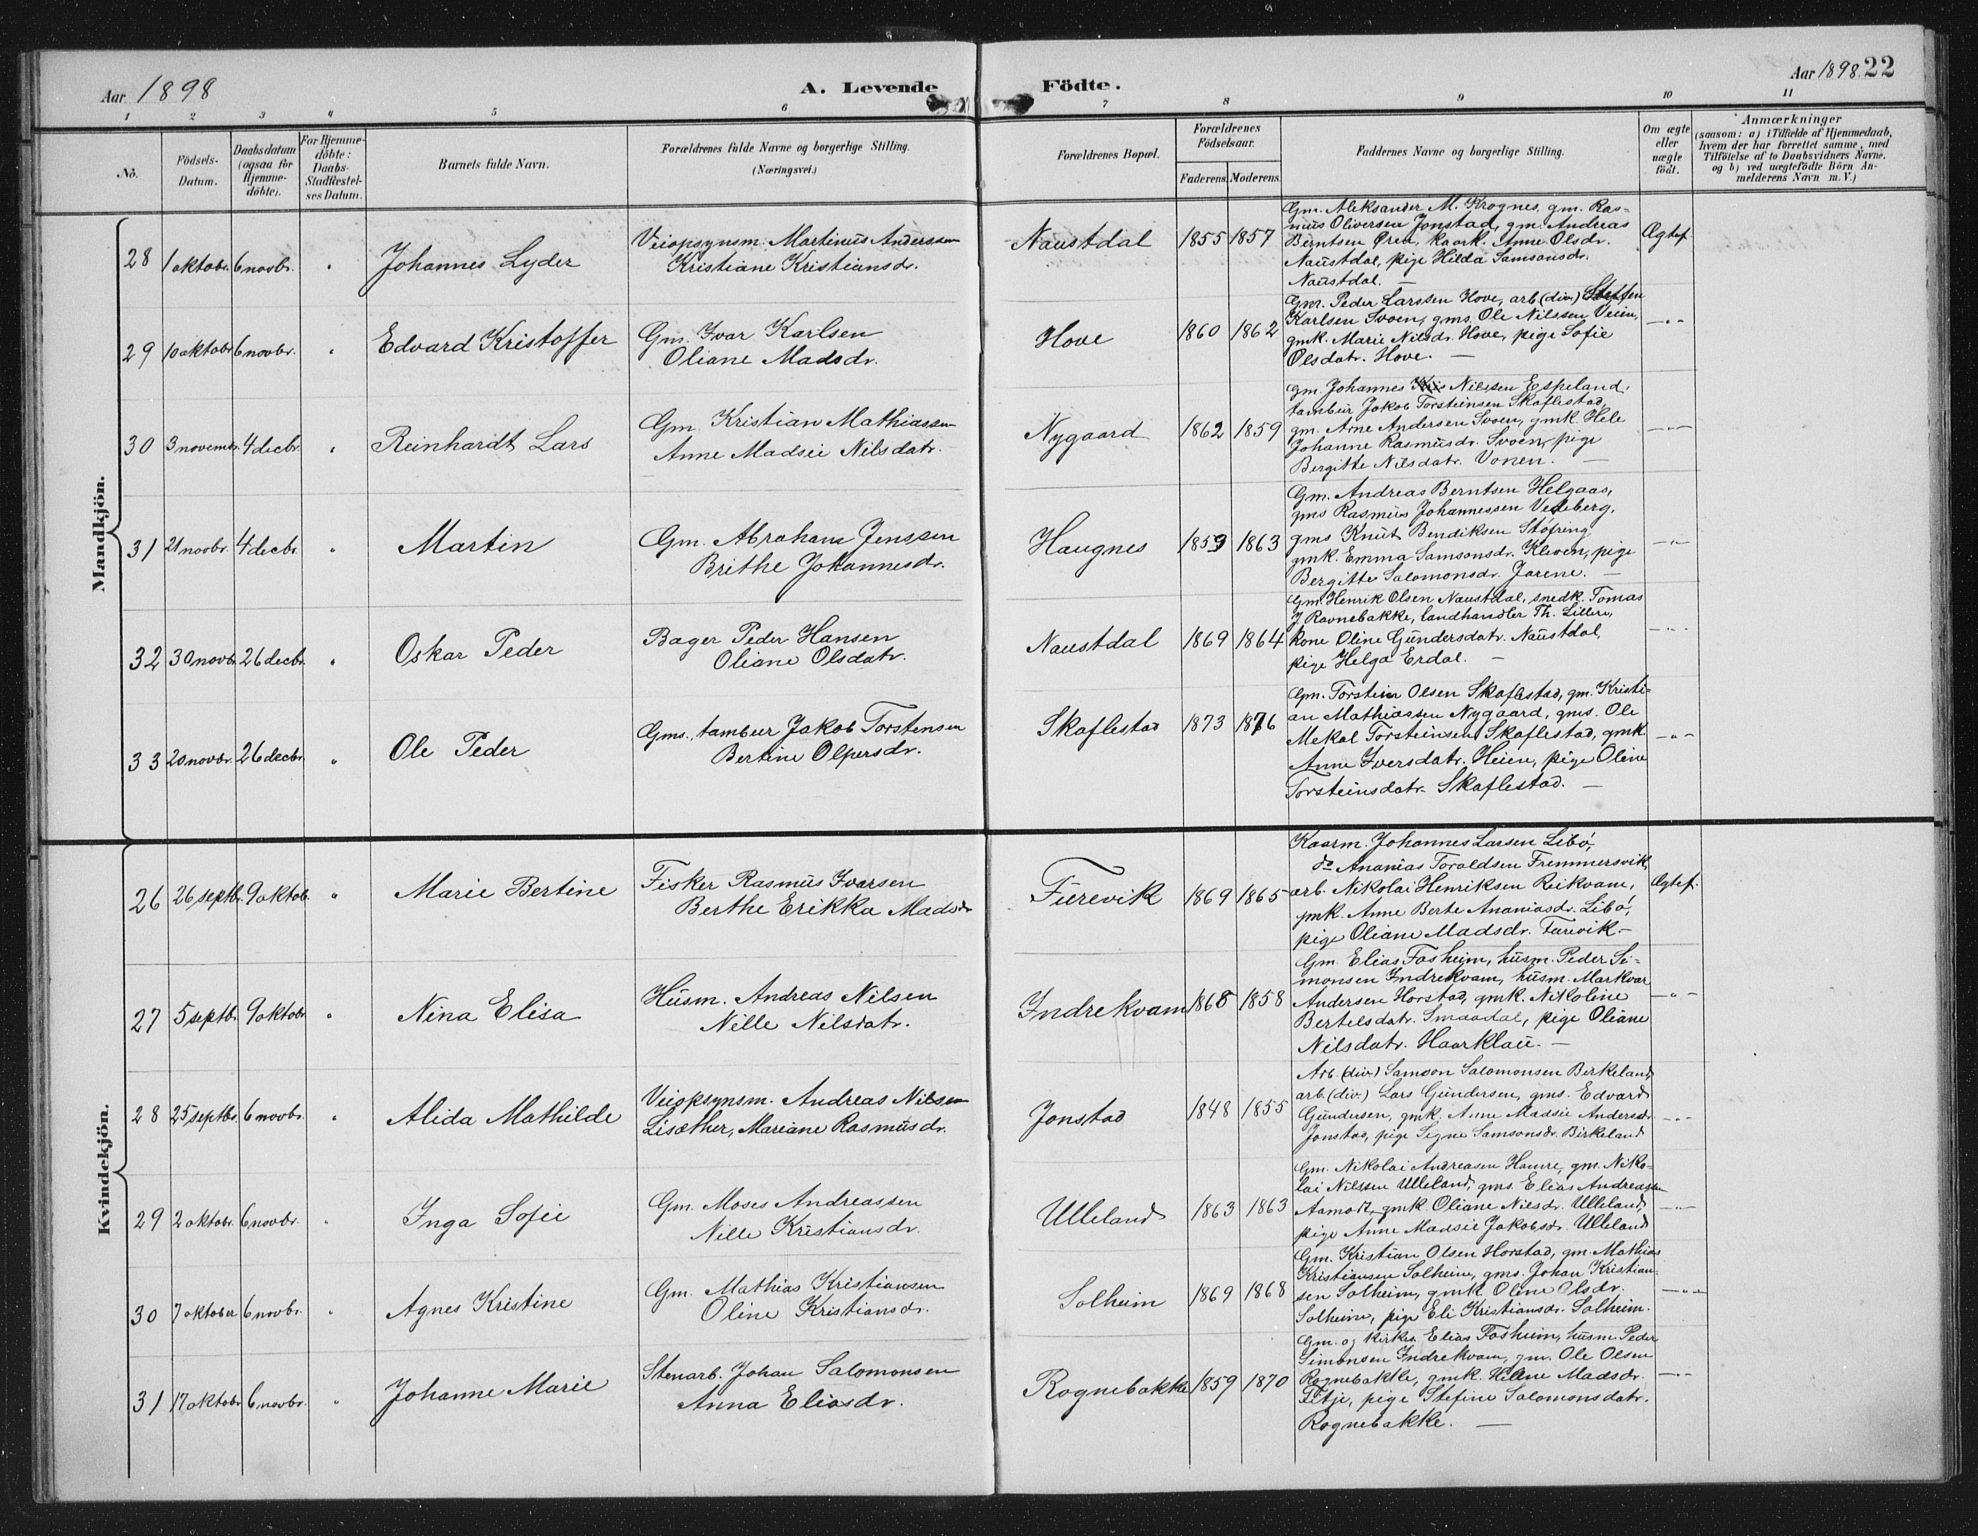 Aar 1898
A. Levende Födte.
Aar 1898. 22
1 2 3 4 5 6 7 8 9 10 11
No.
Födsels-
Datum.
Daabsdatum
(ogsaa for
Hjemme-
döbte).
For Hjemme-
döbte:
Daabs-
Stadfæstel-
ses Datum.
Barnets fulde Navn.
Forældrenes fulde Navne og borgerlige Stilling.
(Næringsvei.)
Forældrenes Bopæl.
Forældrenes
Födselsaar.
Faderens. Moderens.
Faddernes Navne og borgerlige Stilling.
Om ægte
eller
uægte
födt.
Anmærkninger
(saasom: a) i Tilfælde af Hjemmedaab,
hvem der har forrettet samme, med
Tilföielse af to Daabsvidners Navne,
og b) ved uægtefödte Börn An-
melderens Navn m. V.)
Mandkjön.
28 1 oktobr. 6 novbr. " Johannes Lyder
Veiopsynsm. Martinus Anderssen
Kristiane Kristiansdr.
Naustdal 1855 1857
Gm. Aleksander M. Krognes, gm. Ras-
mus Oliversen Jonstad, gm. Andreas
Berntsen Øren, kaark. Anne Olsdr.
Naustdal, pige Hilda Samsonsdr.
Naustdal. —
Ægtef.
29 10 oktobr 6 novbr. " Edvard Kristoffer
Gm. Ivar Karlsen
Oliane Madsdr.
Hove 1860 1862
Gm. Peder Larssen Hove, arb. (div.) Steffen
Karlsen Svoen, gms. Ole Nilssen Veien,
gmk. Marie Nilsdr. Hove, pige Sofie
Olsdatr. Hove. —
—"—
30 3 novembr. 4 decbr. " Reinhardt Lars
Gm. Kristian Mathiassen
Anne Madsie Nilsdatr.
Nygaard 1862 1859
Gm. Johannes Nilssen Espeland,
tambur Jakob Torsteinsen Skaflestad,
gm. Arne Andersen Svoen, gmk. Hele
Johanne Rasmusdr. Svoen, pige
Bergitte Nilsdatr. Vonen. —
—"—
31 21 novbr. 4 decbr. " Martin
Gm. Abraham Jenssen
Brithe Johannesdr.
Haugnes 1859 1863
Gm. Andreas Berntsen Helgaas,
gms Rasmus Johannessen Vedeberg,
gms Knut Bendiksen Støfring
gmk. Emma Samsonsdr. Kleven, pige
Bergitte Salomonsdr. Jarene. —
—"—
32 30 novbr. 26 decbr. " Oskar Peder
Bager Peder Hansen
Oliane Olsdatr.
Naustdal 1869 1864
Gm. Henrik Olsen Naustdal, snedk. Tomas
J Ravnebakke, landhandler Th. Lillern,
kone Oline Gundersdatr. Naustdal,
pige Helga Erdal. —
—"—
33 20 novbr. 26 decbr. " Ole Peder
Gms. tambur Jakob Torstensen
Bertine Olpersdr.
Skaflestad 1873 1876
Gm. Torstein Olsen Skaflestad, gm. Kristi-
an Mathiassen Nygaard, gms. Ole
Mekal Torsteinsen Skaflestad, gmk
Anne Iversdatr. Heien, pige Oline
Torsteinsdatr. Skaflestad. —
—"—
Kvindekjön.
26 26 septbr. 9 oktob. " Marie Bertine
Fisker Rasmus Ivarsen
Berthe Erikka Madsdr
Furevik 1869 1865
Kaarm. Johannes Larsen Libø,
do Ananias Toraldsen Fremmersvik,
arb. Nikolai Henriksen Reikvam,
gmk. Anne Berte Ananiasdr. Libø,
pige Oliane Madsdr. Furevik.—
Ægtef.
27 5 septbr. 9 oktob " Nina Elisa
Husm. Andreas Nilsen
Nille Nilsdatr.
Indrekvam 1868 1858
Gm. Elias Fosheim, husm. Peder Si-
monsen Indrekvam, husm. Markvar
Andersen Horstad, gmk. Nikoline
Bertelsdatr. Smaadal, pige Oliane
Nilsdatr. Haarklau. —
—"—
28 25 septbr. 6 novbr. " Alida Mathilde
Veiopsynsm. Andreas Nilsen
Lisæther, Mariane Rasmusdr.
Jonstad 1848 1855
Arb. (div.) Samson Salomonsen Birkeland,
arb (div.) Lars Gundersen, gms. Edvard
Gundersen, gmk. Anne Madsie Andersdr
Jonstad, pige Signe Samsonsdr. Birkeland
—"—
29 2 oktobr. 6 novbr. " Inga Sofie
Gm. Moses Andreassen
Nille Kristiansdr.
Ulleland 1863 1863
Gm. Nikolai Andreasen Hamre, gm. Niko-
lai Nilssen Ulleland, gms. Elias Andreassen
Aamodt, gmk Oliane Nilsdr. Ulleland,
pige Anne Madsie Jakobsdr. Ulleland
—"—
30 7 oktober 6 novbr. " Agnes Kristine
Gm. Mathias Kristiansen
Oline Kristiansdr.
Solheim 1869 1868
Gm. Kristian Olsen Horstad, gm. Mathias
Kristiansen Solheim, gms. Johan Kristian-
sen Solheim, gmk Oline Olsdr.
Solheim, pige Eli Kristiansdr. Solheim.
—"—
31 17 oktobr 6 novbr. " Johanne Marie
Stenarb. Johan Salomonsen
Anna Eliasdr.
Rognebakke 1859 1870
Gm. og kirkes. Elias Fosheim, husm Peder
Simonsen Indrekvam, gm. Ole Olsen
Rognebakke, gmk. Helene Madsdr.
Fitje, pige Stefine Salomonsdatr.
Rognebakke. —
—"—